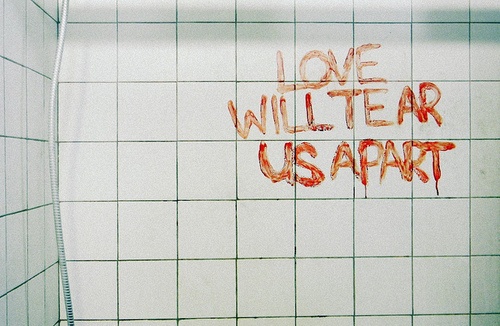 LOVE
WILL TEAR
US APART